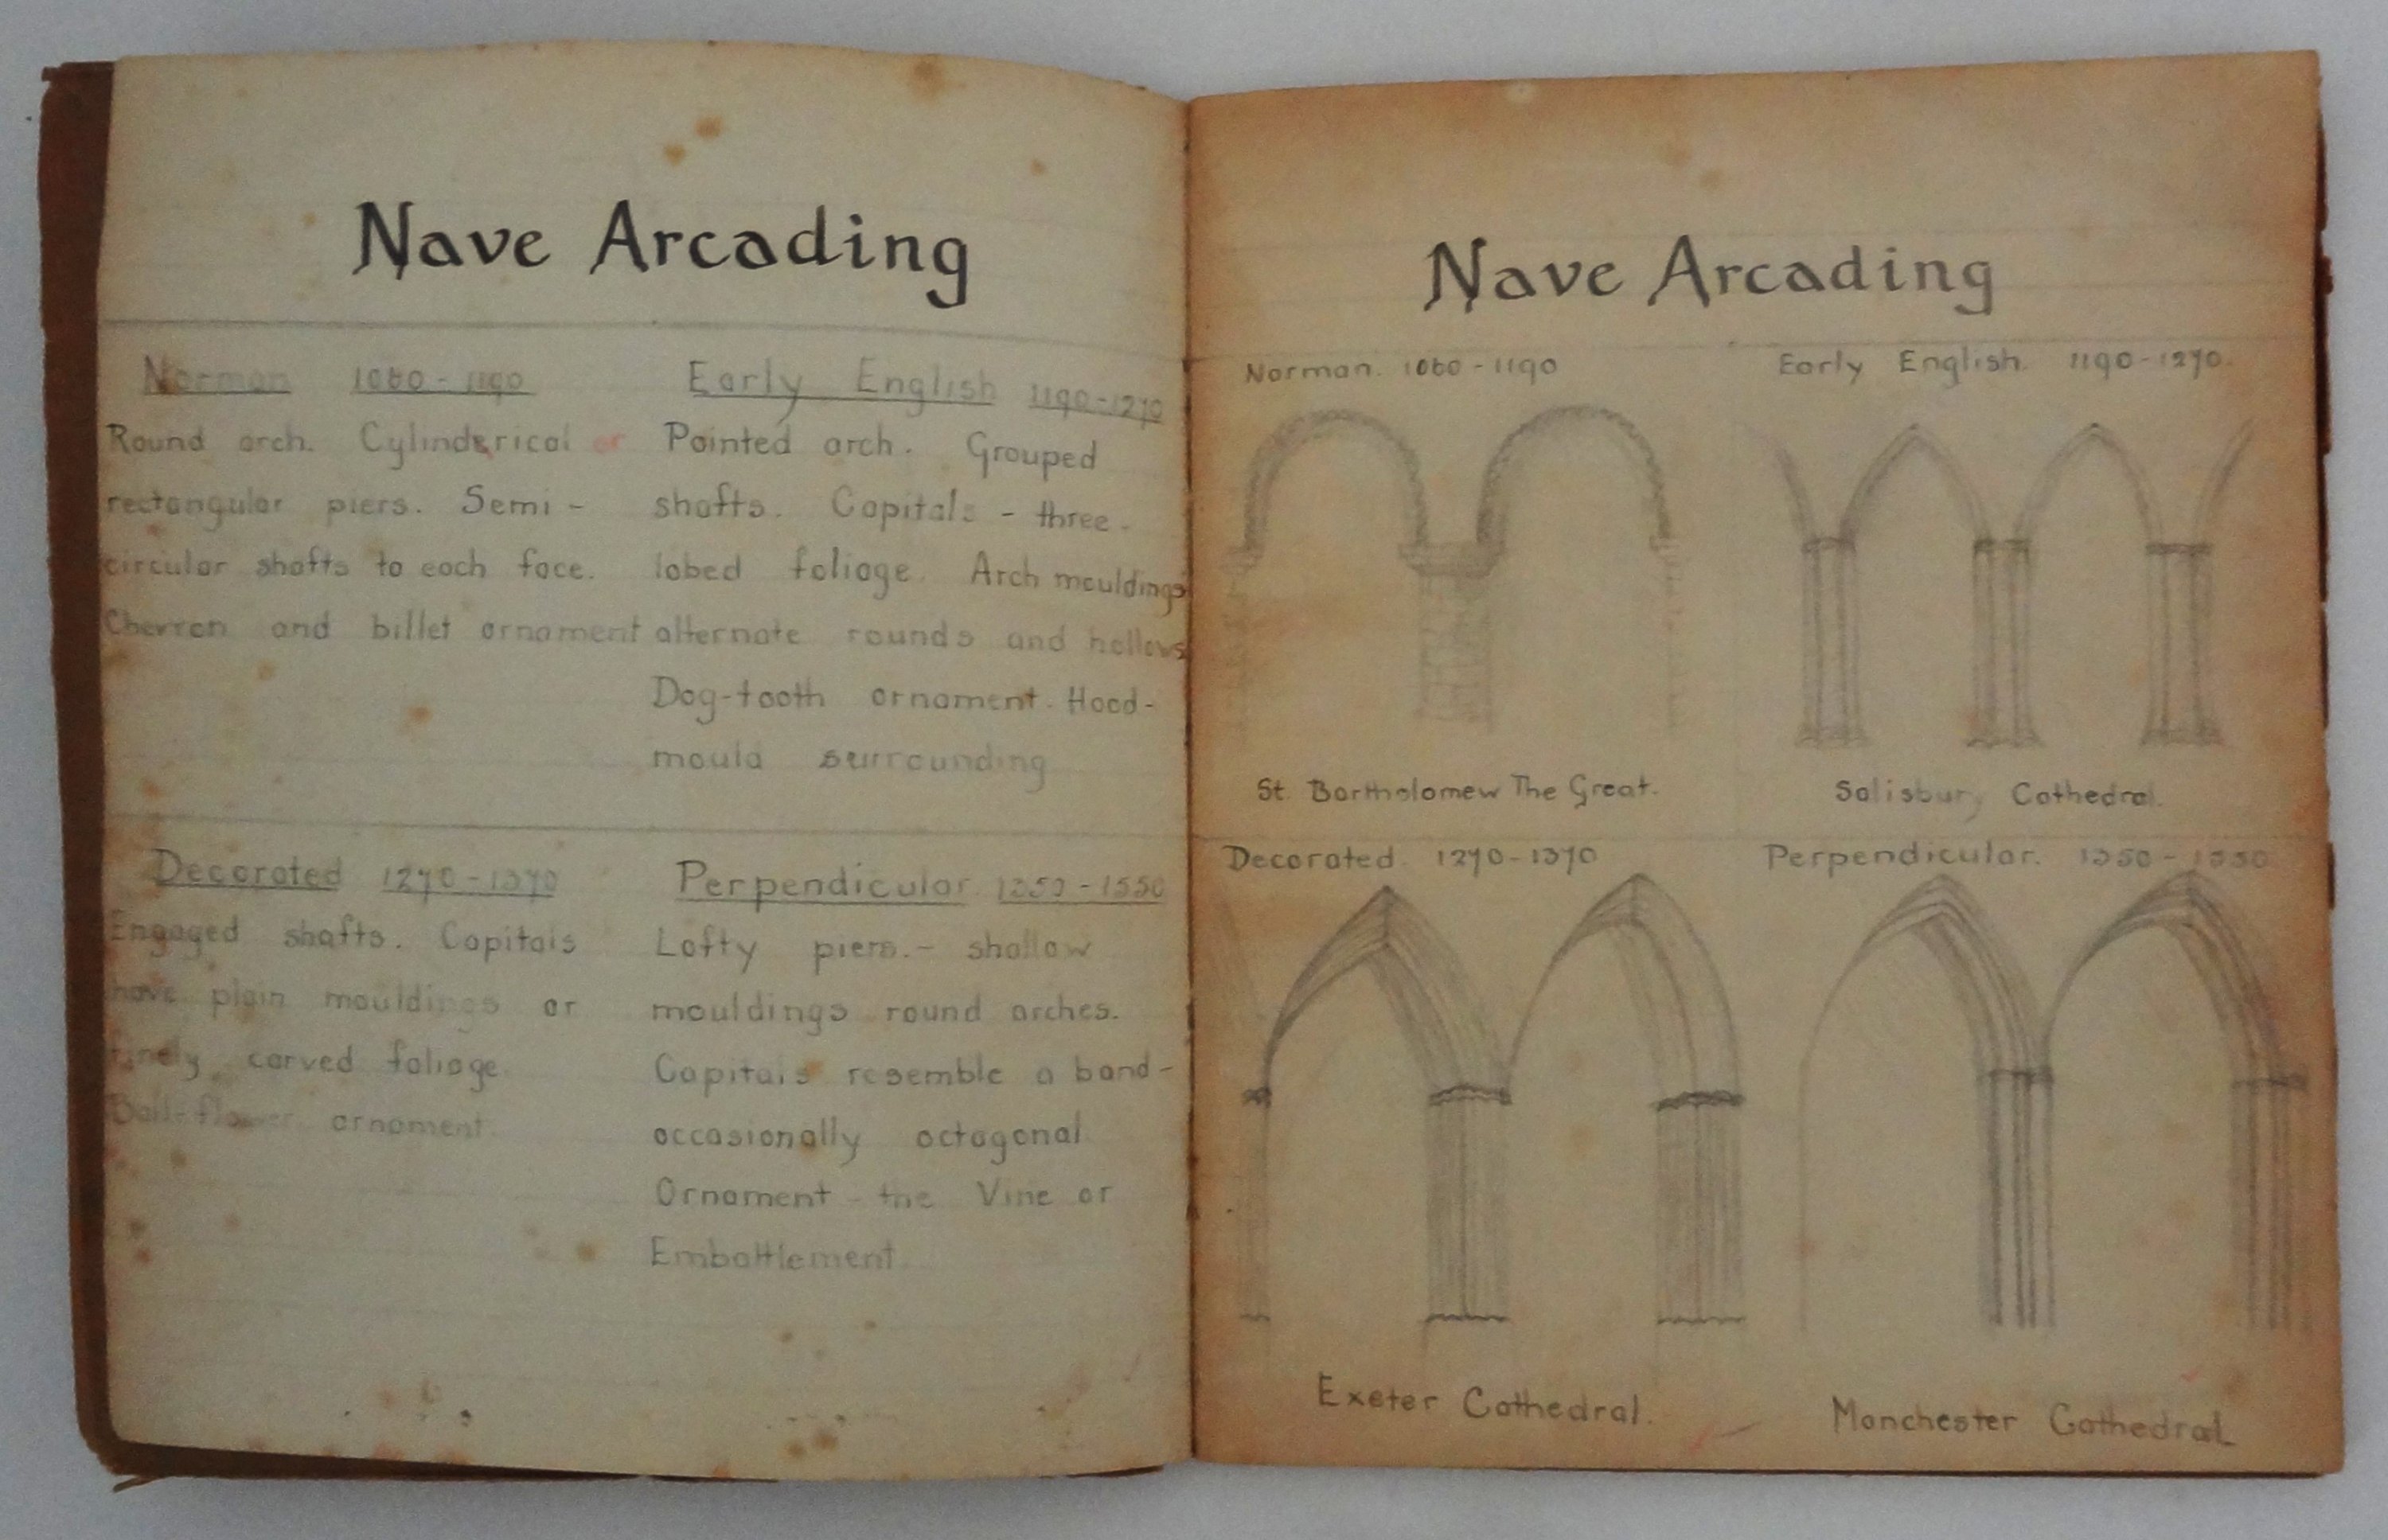 Nave Arcading
Norman 1060 - 1190
Round arch. Cylinderical or
rectangular piers. Semi -
circular shafts to each face.
Chevron and billet ornament
Early English 1190-1270
Pointed arch. Grouped
shafts. Capitals - three -
lobed foliage. Arch mouldings
alternate rounds and hollows
Dog-tooth ornament. Hood-
mould surrounding
Decorated 1270-1370
Engaged shafts. Capitals
have plain mouldings or
finely carved foliage
Ball-flower ornament.
Perpendicular 1350-1550
Lofty piers. - shallow
mouldings round arches.
Capitals resemble a band -
occasionally octagonal
Ornament - the Vine or
Embattlement
Nave Arcading
Norman. 1060-1190
Early English. 1190-1270.
St. Bartholomew The Great.
Salisbury Cathedral.
Decorated. 1270-1370
Perpendicular. 1350-1550
Exeter Cathedral.
Manchester Cathedral